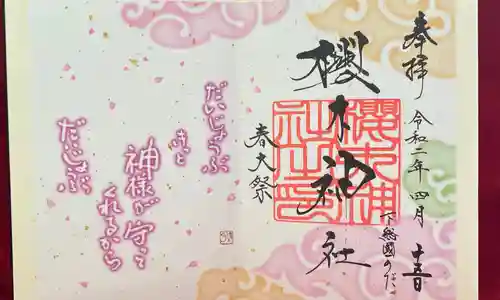 奉拝
令和二年四月十五日
下総國のだ
櫻木神社
春大祭
だいじょうぶ
きっと
神様が守って
くれるから
だいじょぶ